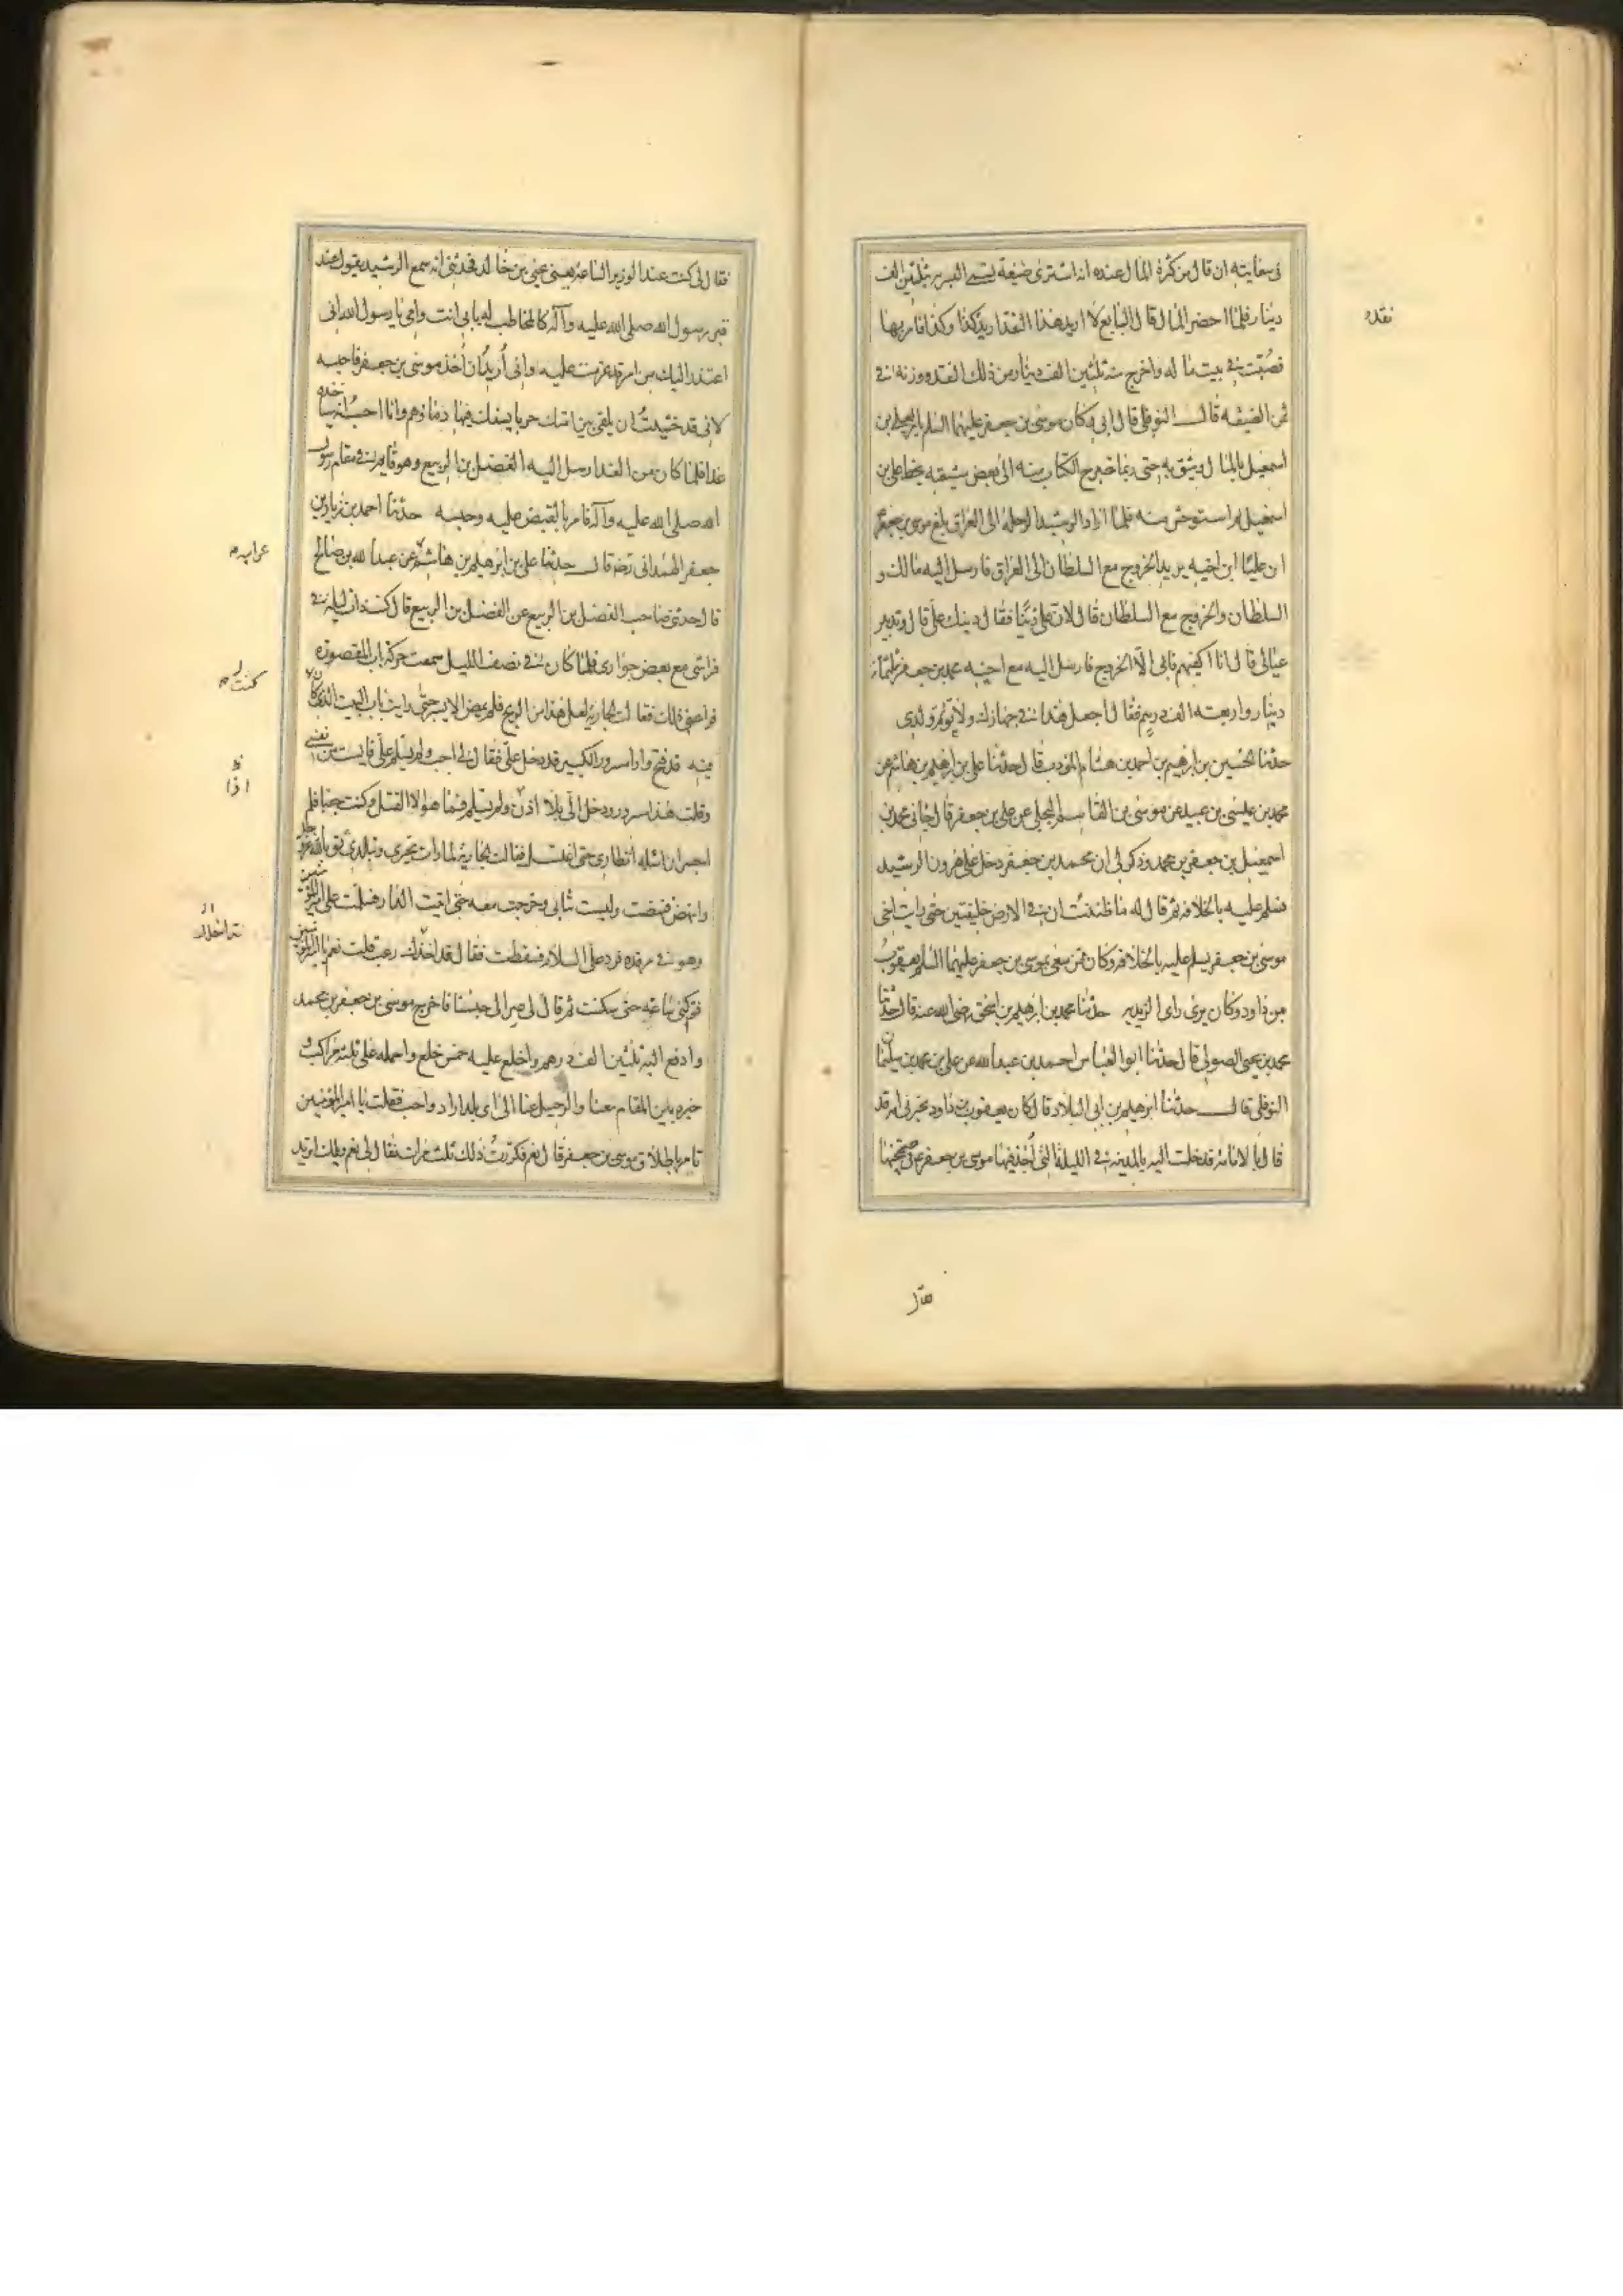 في سعايته ان قال من كثرة المال عنده انه اشترى ضيعة تسمى البسرية بثلثين الف
دينار فلما احضر المال قال البايع لا اريد هذا النقد اريد كذا وكذا فامر بها
فصبت في بيت ماله واخرج منه ثلثين الف دينار من ذلك النقد ووزنه في
ثمن الضيعة قال النوفلي قال ابي وكان موسى بن جعفر عليهما السلم يامر لعلي بن
اسمعيل بالمال ويثق به حتى ربما خرج الكتاب منه الى بعض شيعته بخط علي بن
اسمعيل ثم استوحش منه فلما اراد الرشيد الرحلة الى العراق بلغ موسى بن جعفر
ان عليا ابن اخيه يريد الخروج مع السلطان الى العراق فارسل اليه مالك و
السلطان والخروج مع السلطان قال لان علي دينا فقال دينك علي قال وتدبير
عيالي قال انا اكفيهم فابى الا الخروج فارسل اليه مع اخيه محمد بن جعفر ثلثمائة
دينار واربعة الف درهم فقال اجعل هذا في جهازك ولا توتم ولدي
حدثنا الحسين بن ابرهيم بن احمد بن هشام المودب قال حدثنا علي بن ابرهيم بن هاشم عن
محمد بن عيسى بن عبيد عن موسى بن القاسم البجلي عن علي بن جعفر قال جاني محمد بن
اسمعيل بن جعفر بن محمد وذكر لي ان محمد بن جعفر دخل على هرون الرشيد
فسلم عليه بالخلافة ثم قال له ما ظننت ان في الارض خليفتين حتى رايت اخي
موسى بن جعفر يسلم عليه بالخلافة وكان ممن سعى بموسى بن جعفر عليهما السلم يعقوب
بن داود وكان يرى راى الزيدية حدثنا محمد بن ابرهيم بن اسحق رضي الله عنه قال حدثنا
محمد بن يحيى الصولي قال حدثنا ابو العباس احمد بن عبد الله عن علي بن محمد بن سليمان
النوفلي قال حدثنا ابرهيم بن ابي البلاد قال كان يعقوب بن داود يخبرني انه قد
قال بالامامة فدخلت اليه بالمدينة في الليلة التي اخذ فيها موسى بن جعفر في صبيحتها
نقده
فقال لي كنت عند الوزير الساعة يعني يحيى بن خالد فحدثني انه سمع الرشيد يقول عند
قبر رسول الله صلى الله عليه وآله كالمخاطب له بابي انت وامي يا رسول الله اني
اعتذر اليك من امر قد عزمت عليه واني اريد ان اخذ موسى بن جعفر فاحبسه
لاني قد خشيت ان يلقي بين امتك حربا يسفك فيها دماؤهم وانا احسب انه سياخذه
غدا فلما كان من الغد ارسل اليه الفضل بن الربيع وهو قايم في مقام رسول
الله صلى الله عليه وآله فامر بالقبض عليه وحبسه حدثنا احمد بن زياد بن
جعفر الهمداني رضه قال حدثنا علي بن ابرهيم بن هاشم عن عبد الله بن صالح
قال حدثني صاحب الفضل بن الربيع عن الفضل بن الربيع قال كنت ذات ليلة في
فراشي مع بعض جواري فلما كان في نصف الليل سمعت حركة باب المقصورة
فراعني ذلك فقالت الجارية لعل هذا من الريح فلم يمض الا يسير حتى رايت باب البيت الذي كنت
فيه قد فتح واذا مسرور الكبير قد دخل علي فقال لي اجب ولم يسلم علي فايست من نفسي
وقلت هذا مسرور ودخل الي بلا اذن ولم يسلم فما هو الا القتل وكنت جنبا فلم
اجسر ان اسئله انظاري حتى اغتسل فقالت الجارية لما رات تحيري وتبلدي ثق بالله عز وجل
وانهض فنهضت ولبست ثيابي وخرجت معه حتى اتيت الدار فسلمت على امير المؤمنين
وهو في مرقده فرد علي السلام فسقطت فقال تداخلك رعب قلت نعم يا امير المؤمنين
فتركني ساعة حتى سكنت ثم قال لي صر الى حبسنا فاخرج موسى بن جعفر بن محمد
وادفع اليه ثلثين الف درهم واخلع عليه خمس خلع واحمله على ثلثة مراكب
وخيره بين المقام معنا والرحيل عنا الى اى بلد اراد واحب فقلت يا امير المؤمنين
تامر باطلاق موسى بن جعفر قال نعم فكررت ذلك ثلث مرات فقال لي نعم ويلك اتريد
كنت
اذا